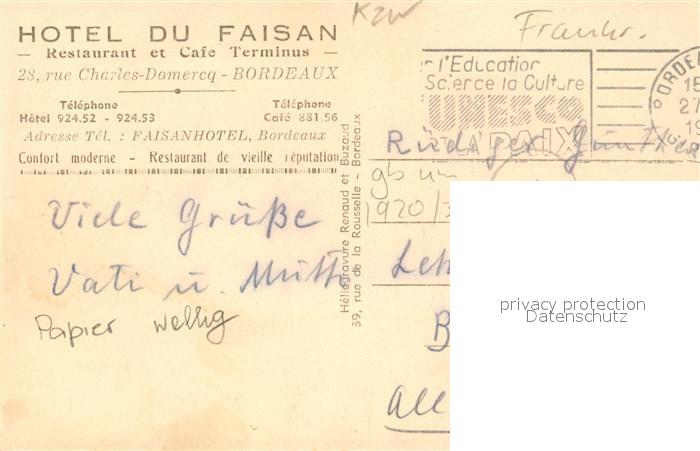 HOTEL DU FAISAN
— Restaurant et Cafe Terminus —
28, rue Charles-Domercq - BORDEAUX
Téléphone
Hôtel 924.52 - 924.53
Téléphone
Café 881.56
Adresse Tél. : FAISANHOTEL, Bordeaux
Confort moderne - Restaurant de vieille réputation
Viele Grüße
Vati u. Mutti
Papier wellig
Héliogravure Renaud et Buzaud
39, rue de la Rousselle - Bordeaux
Frankr.
l'Education
Science la Culture
UNESCO
LA PAIX
BORDEA
15
27
19
Rüdiger
gb um
1920/3
Le
B
All
privacy protection
Datenschutz